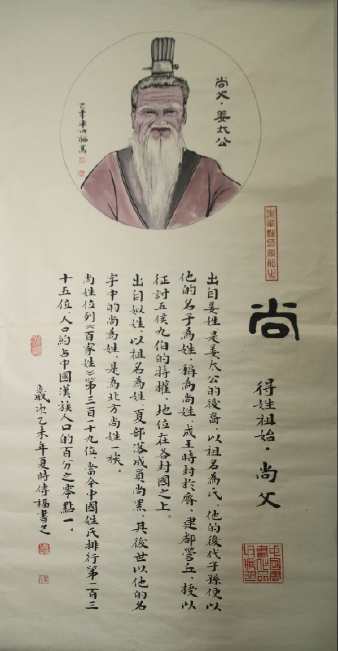 尚父·姜太公
尚
得姓祖始·尚父
出自姜姓是姜太公的後裔，以祖名為氏，他的後代子孫便以
他的名字為姓，稱為尚姓，成王時封於齊，建都營丘，授以
征討五侯九伯的特權，地位在各封國之上。
出自姒姓，以祖名為姓，夏部落成員尚黑，其後世以他的名
字中的尚為姓，是為北方尚姓一族。
尚姓位列《百家姓》第三百一十九位，當今中國姓氏排行第一百三
十五位，人口約占中國漢族人口的百分之零點一，
歲次乙未年夏時傳福書之